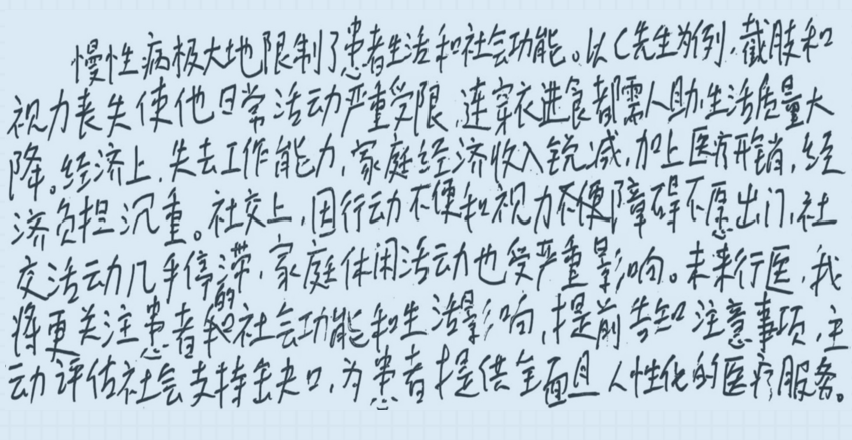 慢性病极大地限制了患者生活和社会功能。以C先生为例,截肢和
视力丧失使他日常活动严重受限,连穿衣进食都需人助,生活质量大
降。经济上,失去工作能力,家庭经济收入锐减,加上医疗开销,经
济负担沉重。社交上,因行动不便和视力障碍不愿出门,社
交活动几乎停滞,家庭休闲活动也受严重影响。未来行医,我
将更关注患者的社会功能和生活影响,提前告知注意事项,主
动评估社会支持缺口,为患者提供全面且人性化的医疗服务。